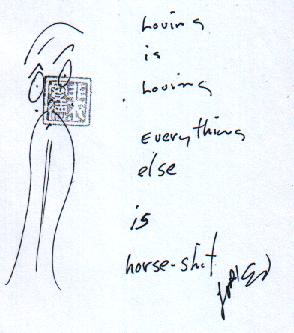 Loving
is
Loving
Everything
else
is
horse-shit